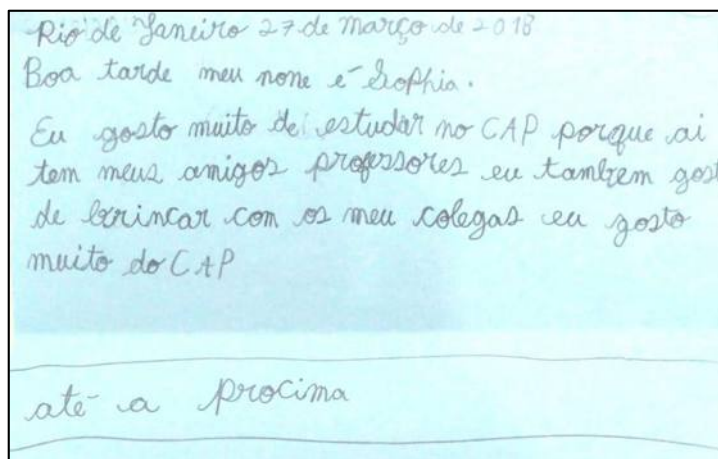 Rio de Janeiro 27 de março de 2018
Boa tarde meu none é Sophia.
Eu gosto muito de estudar no CAP porque ai
tem meus amigos professores eu tambem gost
de brincar com os meu colegas eu gosto
muito do CAP
até a procima